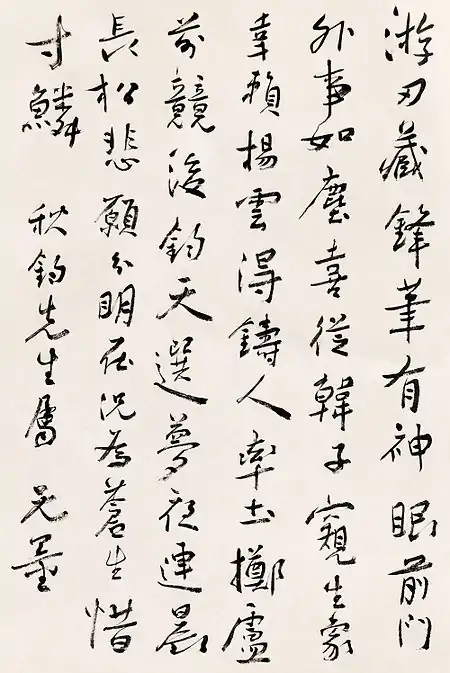 游刃藏鋒筆有神眼前門
外事如塵喜從韓子窺生象
幸賴楊雲得鑄人率土擲盧
前競後鈞天選夢夜連晨
長松悲願分明在況為蒼生惜
寸鱗 秋鈞先生屬